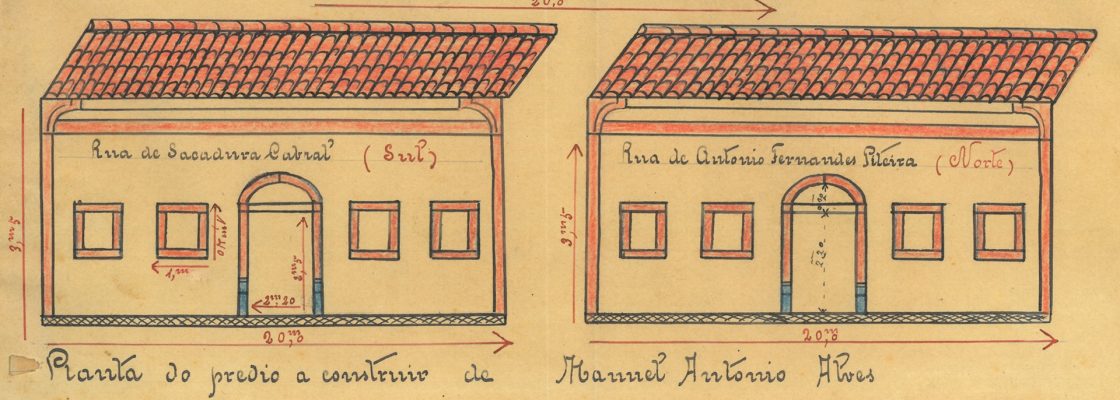 20,m
Rua de Sacadura Cabral (Sul)
Rua de Antonio Fernandes Piteira (Norte)
3,m5
1,m
2,m5
2m,20
20,m
3,m5
2,20
20,m
Planta do predio a construir de Manuel Antonio Alves